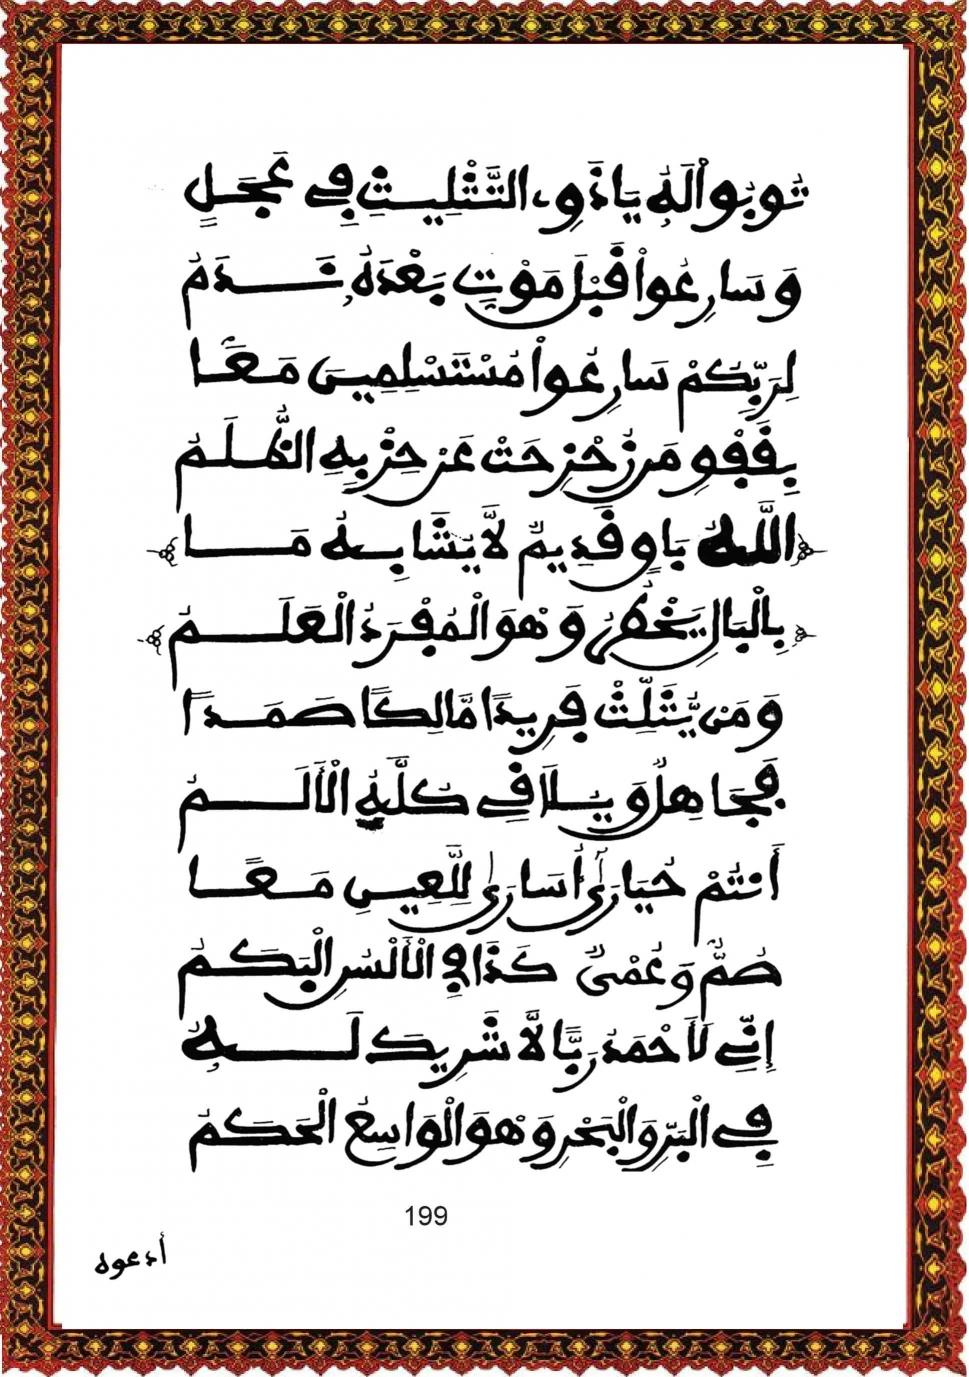 تُوبُوا لَهُ يَا ذَوِي التَّثْلِيثِ فِي عَجَلٍ
وَسَارِعُوا قَبْلَ مَوْتٍ بَعْدَهُ نَدَمُ
لِرَبِّكُمْ سَارِعُوا مُسْتَسْلِمِينَ مَعًا
مَن زُحْزِحَتْ عَنْ حِزْبِهِ الظُّلَمُ
اللَّهُ بَاقٍ قَدِيمٌ لَا يُشَابِهُ مَا
بِالْبَالِ يَخْطُرُ وَهْوَ الْمُفْرَدُ الْعَلَمُ
وَمَن يُثَلِّثْ فَرِيدًا مَّالِكًا صَمَدًا
فَجَاهِلٌ وَيُلَاقِي كُلَّهُ الْأَلَمُ
أَنتُمْ حَيَارَىٰ أُسَارَىٰ لِلَّعِينِ مَعًا
صُمٌّ وَعُمْيٌ كَذَا فِي الْأَلْسُنِ الْبَكَمُ
إِنِّي لَأَحْمَدُ رَبًّا لَّا شَرِيكَ لَهُ
فِي الْبَرِّ وَالْبَحْرِ وَهْوَ الْوَاسِعُ الْحَكَمُ
199
أدعوه